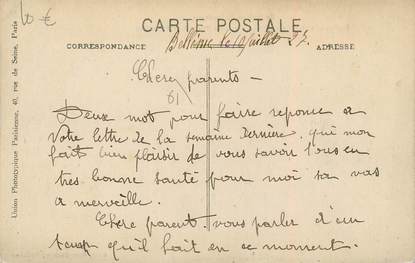 60 €
CARTE POSTALE
CORRESPONDANCE
Bellême le 10 juillet 27.
ADRESSE
Chers parents –
61
Deux mot pour faire reponse a
votre lettre de la semaine dernière, qui mon
fait bien plaisir de vous savoir tous en
tres bonne santé pour moi sa vas
a merveille.
Chere parent vous parler d'un
temps qu'il fait en ce moment.
Union Phototypique Parisienne, 40, rue de Seine, Paris